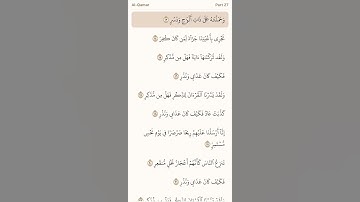 Al-Qamar Part 27
وَحَمَلْنَٰهُ عَلَىٰ ذَاتِ أَلْوَٰحٍ وَدُسُرٍ
تَجْرِى بِأَعْيُنِنَا جَزَآءً لِّمَن كَانَ كُفِرَ
وَلَقَد تَّرَكْنَٰهَآ ءَايَةً فَهَلْ مِن مُّدَّكِرٍ
فَكَيْفَ كَانَ عَذَابِى وَنُذُرِ
وَلَقَدْ يَسَّرْنَا ٱلْقُرْءَانَ لِلذِّكْرِ فَهَلْ مِن مُّدَّكِرٍ
كَذَّبَتْ عَادٌ فَكَيْفَ كَانَ عَذَابِى وَنُذُرِ
إِنَّآ أَرْسَلْنَا عَلَيْهِمْ رِيحًا صَرْصَرًا فِى يَوْمِ نَحْسٍ
مُّسْتَمِرٍّ
تَنزِعُ ٱلنَّاسَ كَأَنَّهُمْ أَعْجَازُ نَخْلٍ مُّنقَعِرٍ
فَكَيْفَ كَانَ عَذَابِى وَنُذُرِ
وَلَقَدْ يَسَّرْنَا ٱلْقُرْءَانَ لِلذِّكْرِ فَهَلْ مِن مُّدَّكِرٍ